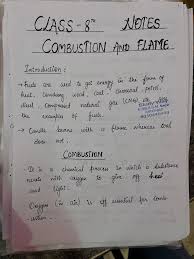 CLASS - 8th NOTES
COMBUSTION AND FLAME
Introduction :
Fuels are used to get energy in the form of
heat, Wood, coal, charcoal, petrol,
diesel, Compressed natural gas (CNG) etc
the examples of fuels.
Candle burns with a flame whereas coal
does not.
COMBUSTION
It is a chemical process in which a substance
reacts with oxygen to give off heat
and light.
Oxygen (in air) is essential for comb-
ustion